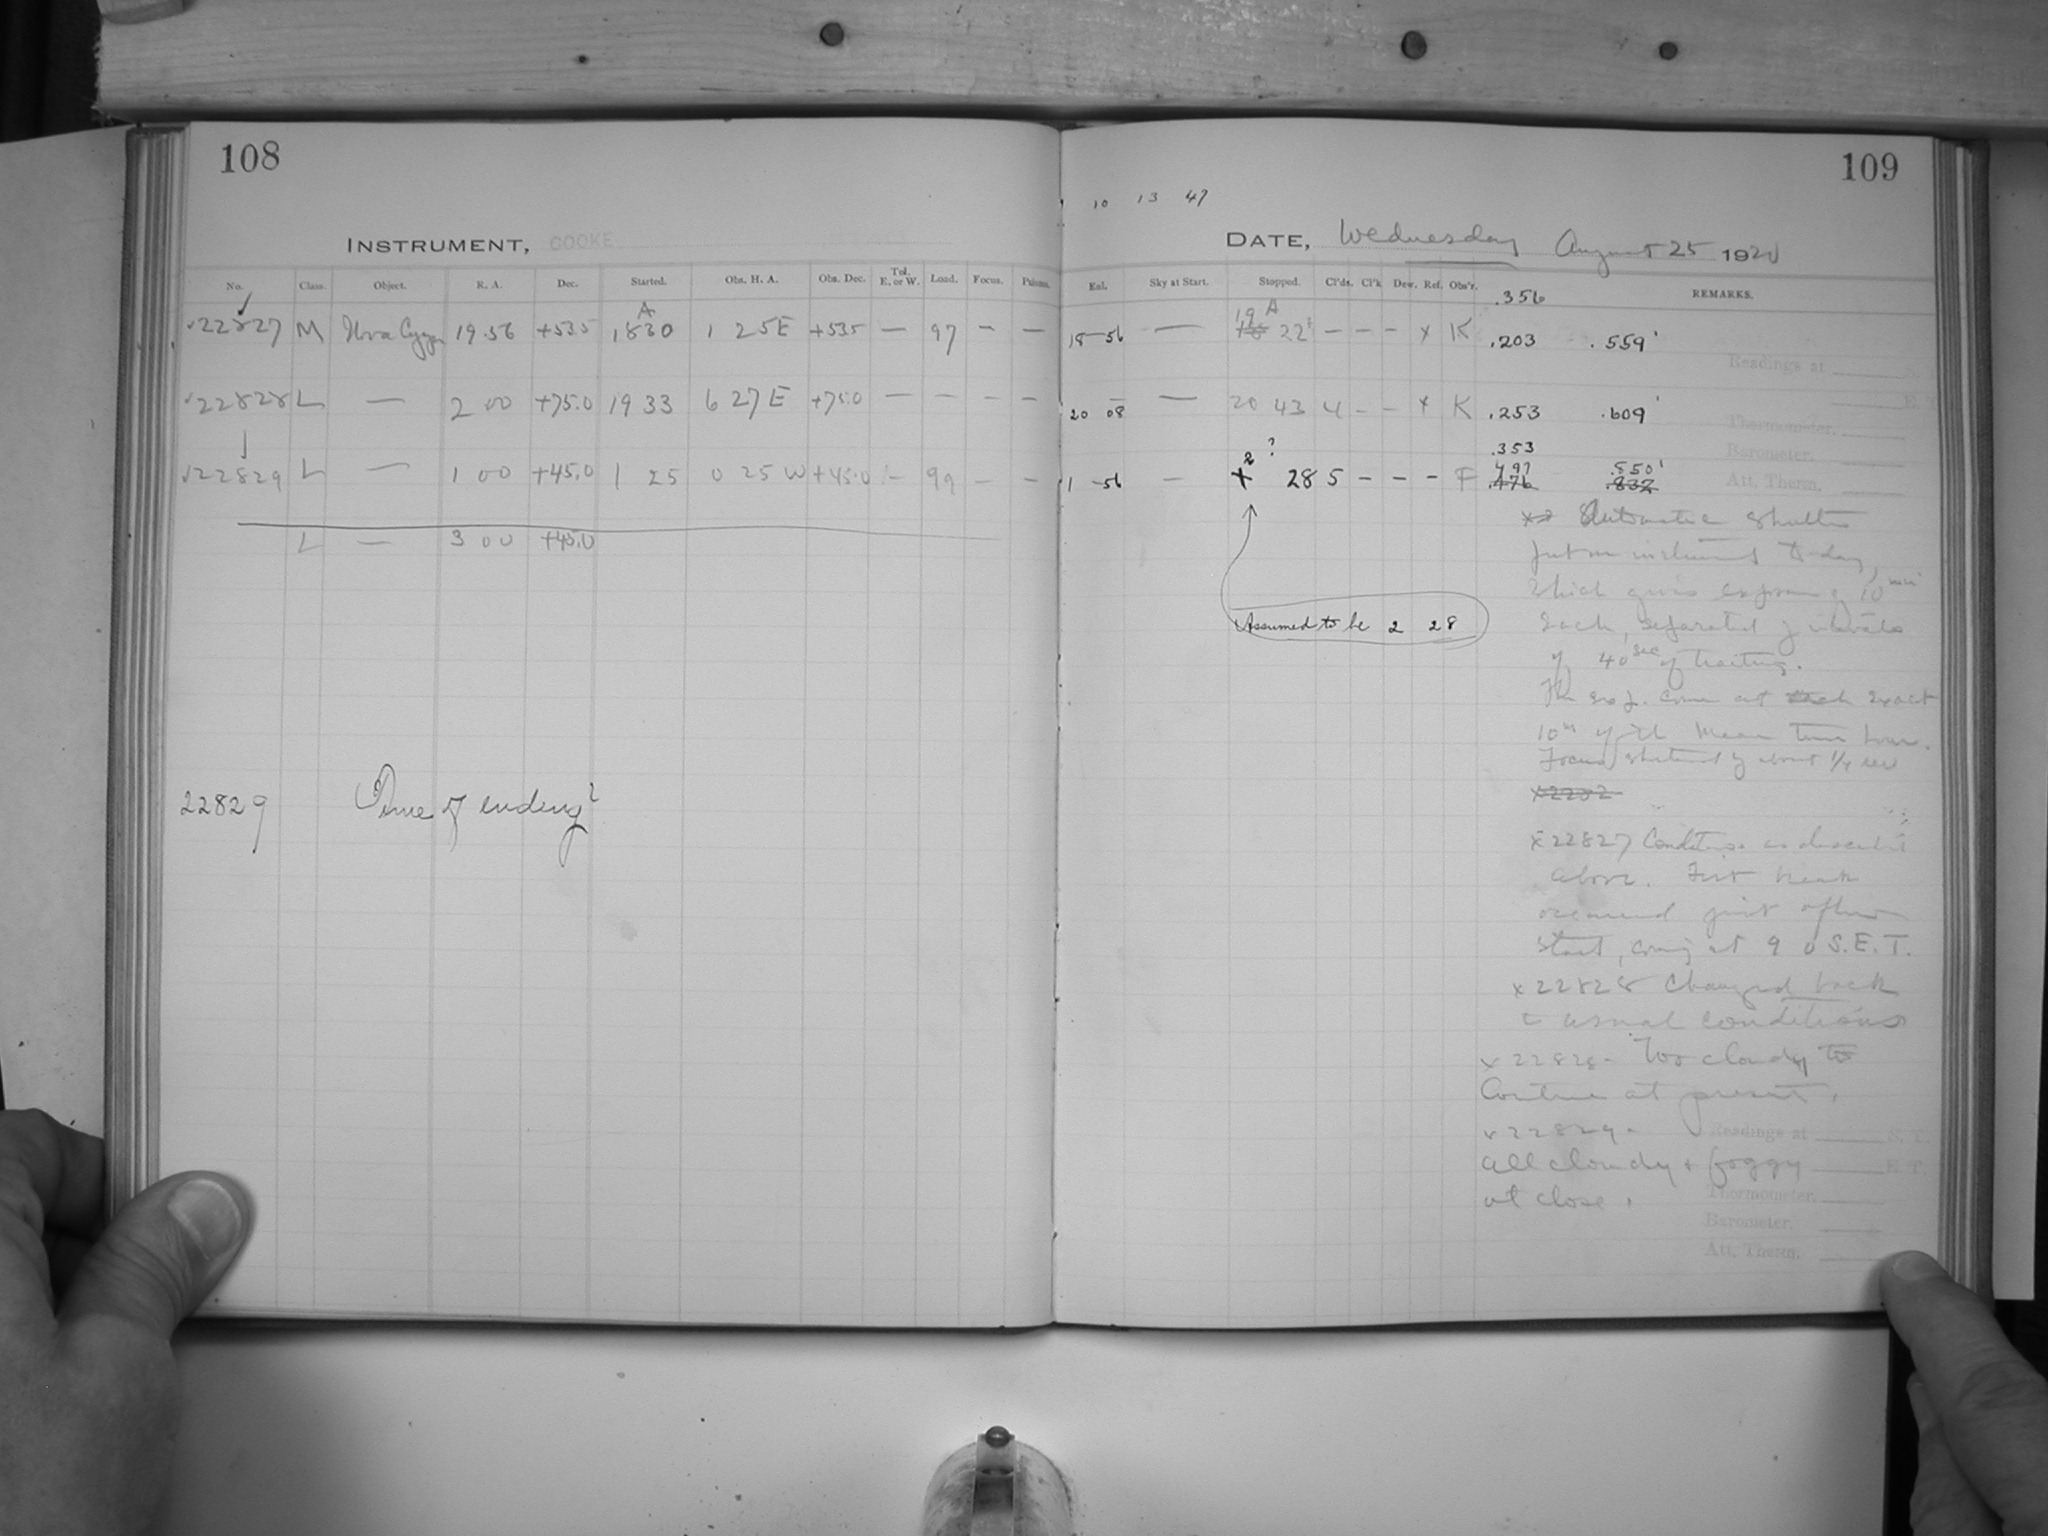 108
INSTRUMENT, COOKE
No. Class. Object. R. A. Dec. Started. Obs. H. A. Obs. Dec. Tel. E. or W. Load. Focus. Prisms.
22827 M Nova Cygn 19 56 +53.5 A 18 30 1 25 E +53.5 — 97 — —
22828 L — 2 00 +75.0 19 33 6 27 E +75.0 — — — —
22829 L — 1 00 +45.0 1 25 0 25 W +45.0 — 99 — —
L — 3 00 +45.0
22829 Time of ending?
109
10 13 47
DATE, Wednesday August 25 1920
Sky at Start. Stopped. Cl'ds. Cl'k Dew. Ref. Obs'r. REMARKS.
.356
18 56 — 19 A 22 — — — x K .203 .559'
Readings at
20 08 — 20 43 4 — — x K .253 .609'
Thermometer.
.353
Barometer.
1 56 — 2 ? 28 5 — — — F .197 .550'
.476 .832
Att. Therm.
Automatic shutter
put on instrument to-day,
which gives exposures of 10 min
each, separated by intervals
of 40 sec of trailing.
The exp. come at each exact
10m of the Mean time hour.
Assumed to be 2 28
x22827 Conditions as described
above. First break
occurred just after
start, coming at 9 0 S.E.T.
x22828 Changed back
to usual conditions
x22828- Too cloudy to
Continue at present.
x22829-
Readings at S. T.
all cloudy + foggy
E. T.
at close.
Thermometer.
Barometer.
Att. Therm.